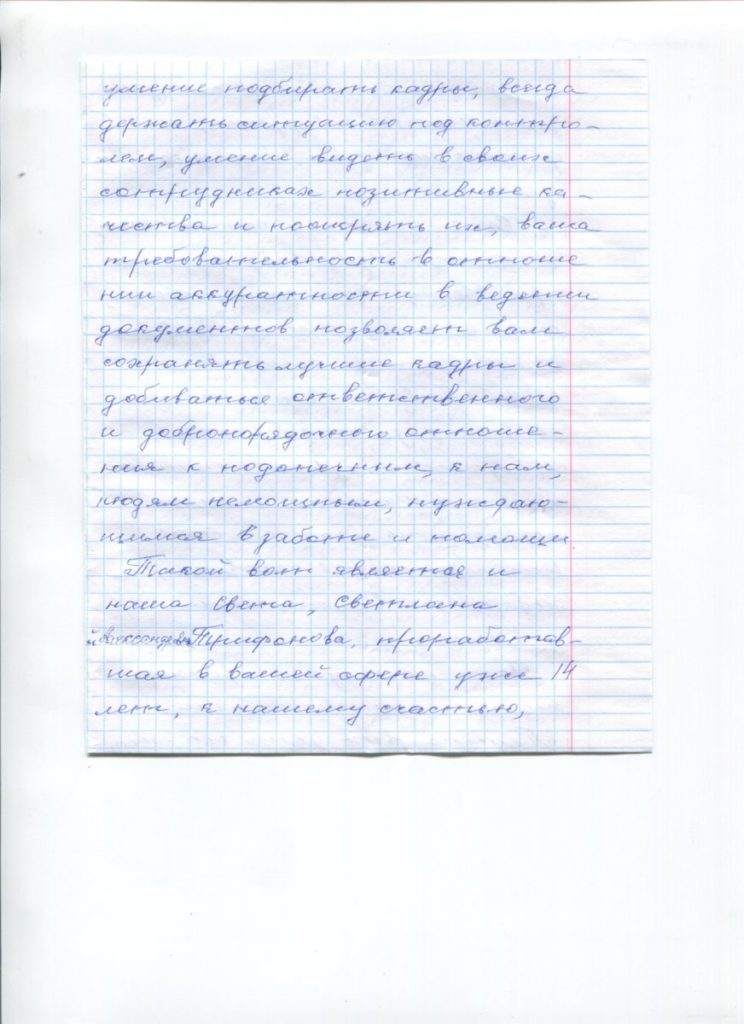 умение подбирать кадры, всегда
держать ситуацию под контро-
лем, умение видеть в своих
сотрудниках позитивные ка-
чества и поощрять их, ваша
требовательность в отноше
нии аккуратности в ведении
документов позволяет вам
сохранять лучшие кадры и
добиваться ответственного
и добропорядочного отноше-
ния к подопечным, к нам,
людям немощным, нуждаю-
щимся в заботе и помощи.
Такой вот является и
наша Света, Светлана
Александровна Трифонова, проработав-
шая в вашей сфере уже 14
лет, к нашему счастью,